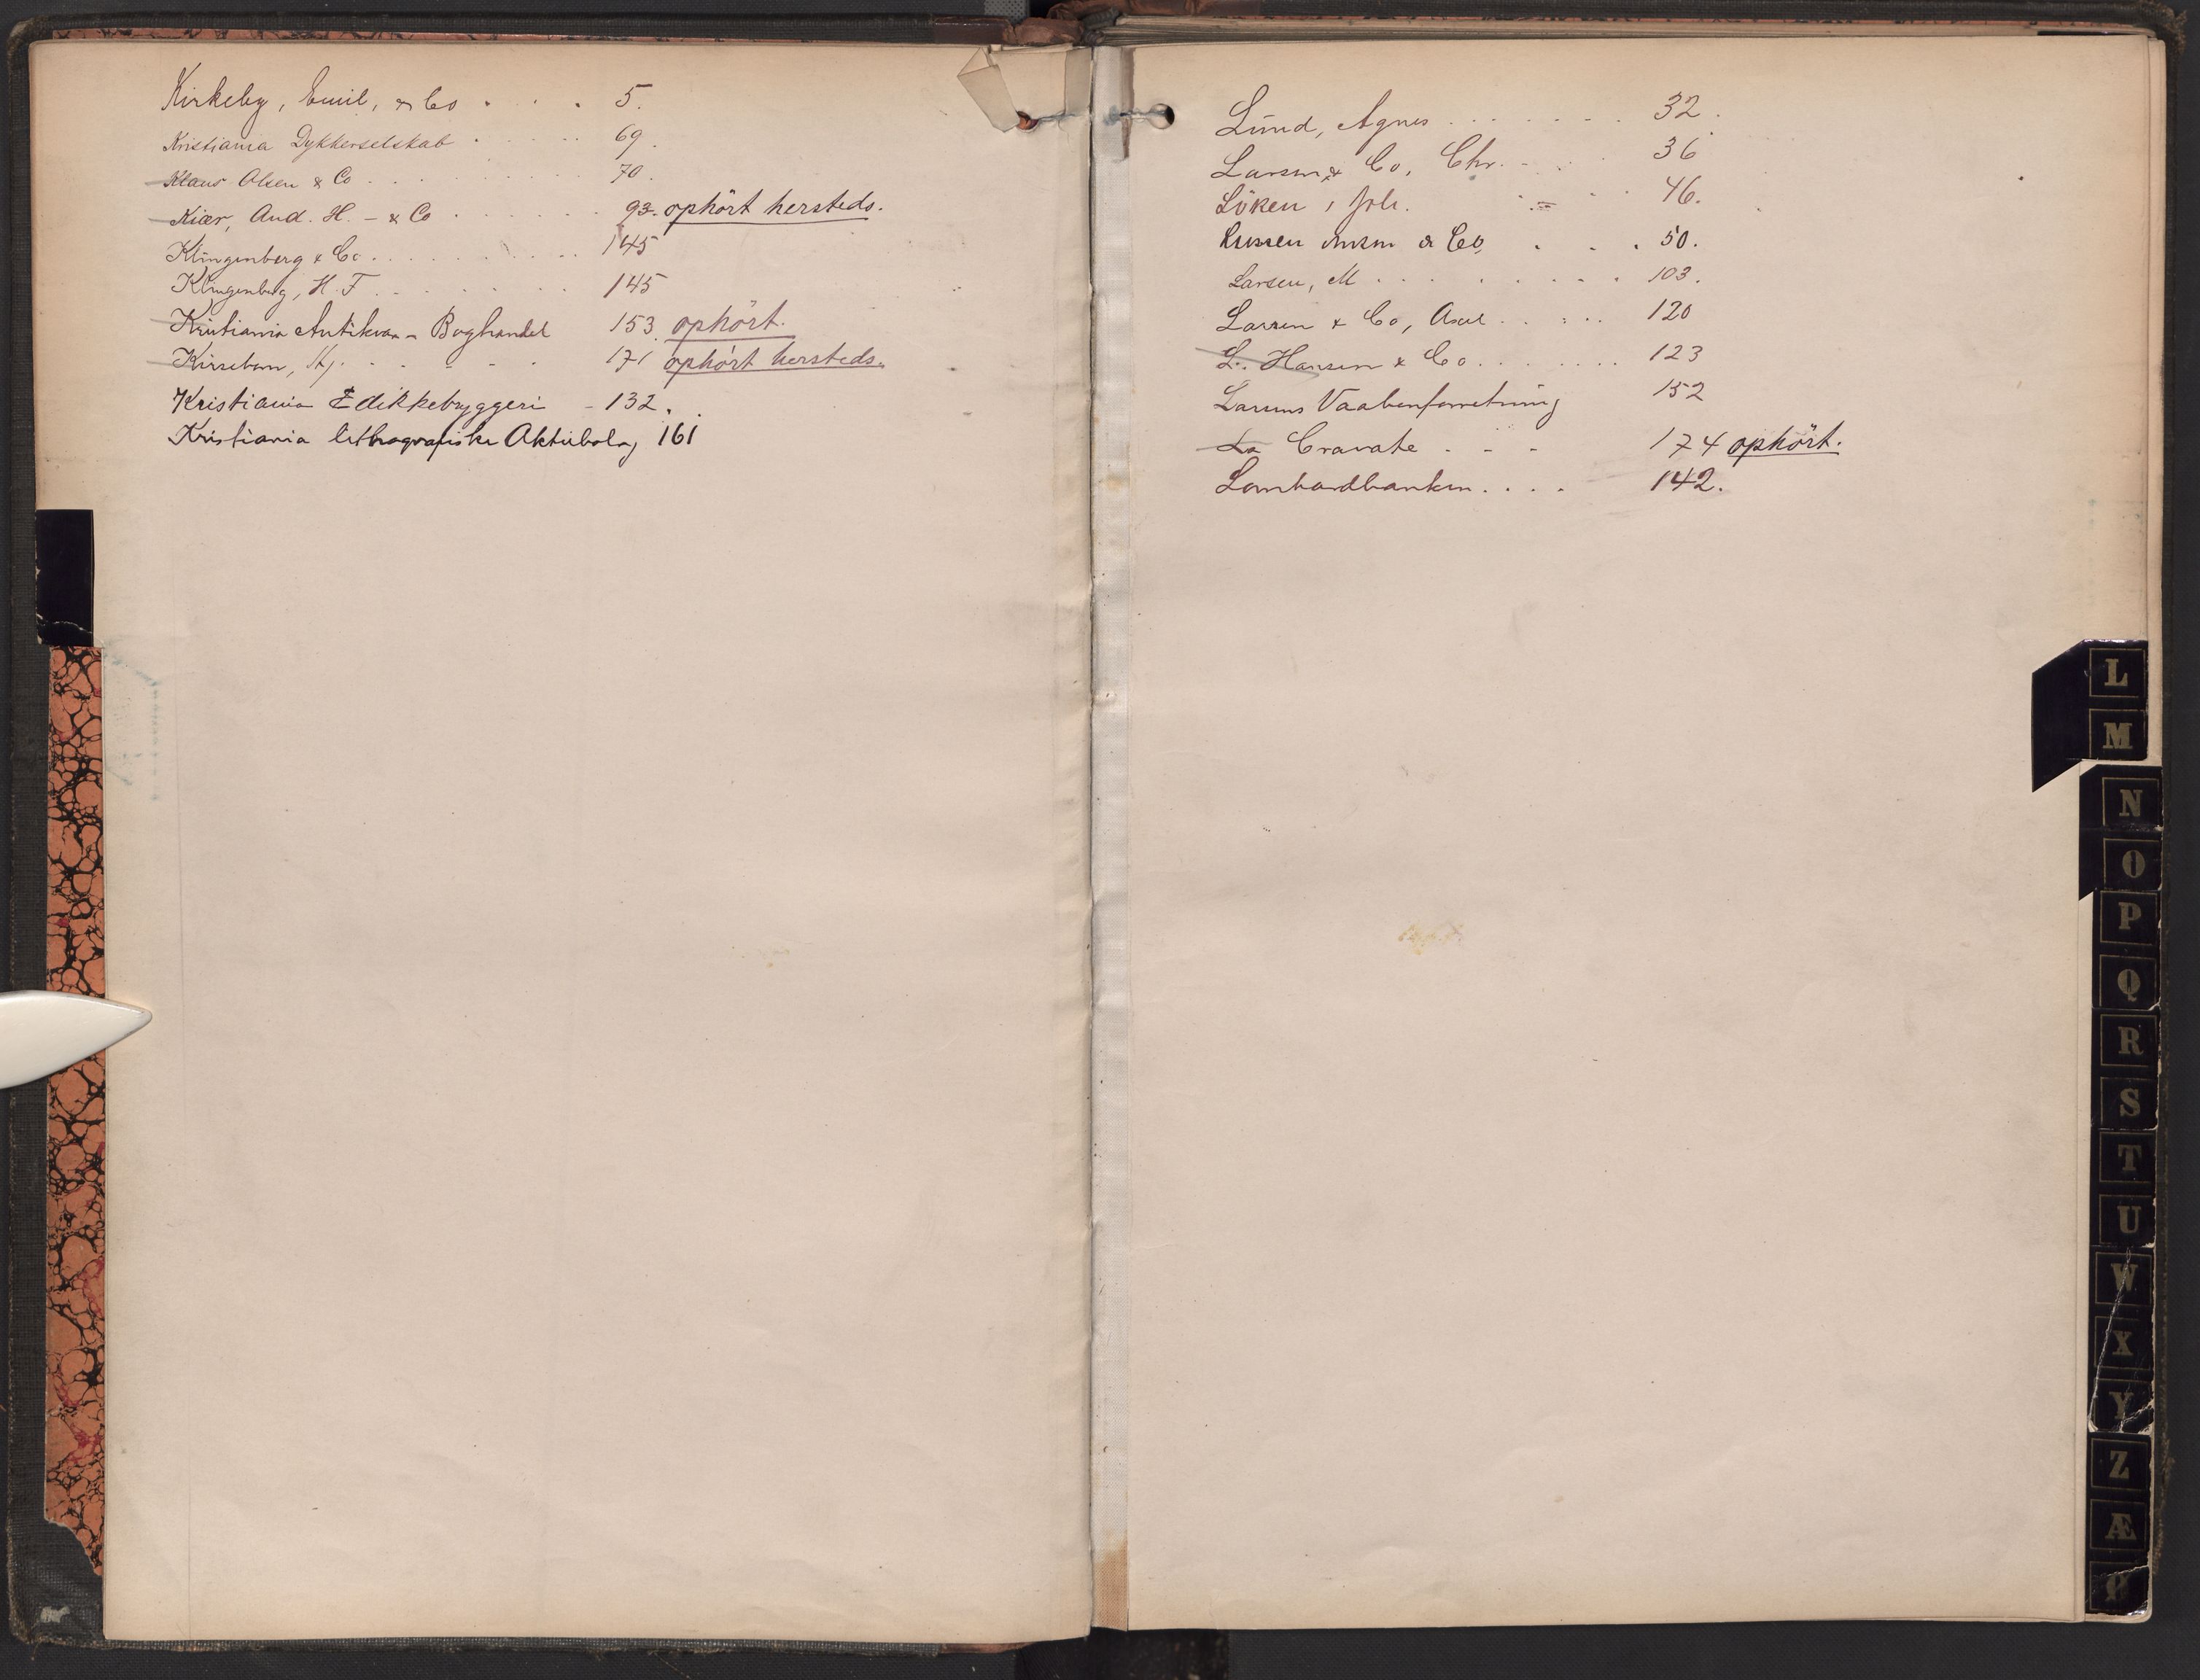 Kirkeby, Emil, & Co . . . . 5.
Kristiania Dykkerselskab . . . . 69.
Klaus Olsen & Co . . . . . . 70.
Kiær, And. H. - & Co . . . . . . 93. ophört hersteds.
Klingenberg & Co . . . . . . . . 145
Klingenberg, H. F . . . . . . . 145
Kristiania Antikvar - Boghandel 153. ophört.
Kirsebom, Hj. - - - - - 171 ophört hersteds.
Kristiania Edikkebryggeri - 132.
Kristiania lithografiske Aktiebolag 161
Lund, Agnes . . . . . . . 32.
Larsen & Co, Chr. . . . . 36
Löken, Joh. . . . . 46.
& Co . . . 50.
Larsen, M . . . . . . . . 103.
Larsen & Co, Axel . . . . . 120
L. Hansen & Co . . . . . . . 123
Larsens Vaabenforretning 152
La Cravate . - - 174 ophört.
Lombardbanken . . . . 142.
L
M
N
O
P
Q
R
S
T
U
W
X
Y
Z
Æ
Ø